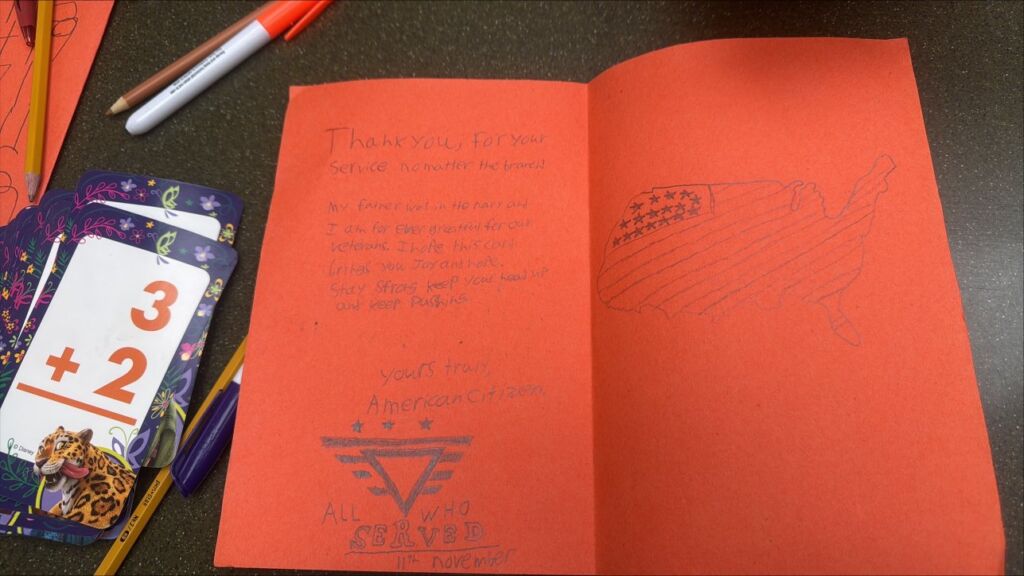 Thank you, For your
Service no matter the branch
My father was in the navy and
I am for ever greatful for our
veterans. I hope this card
brings you Joy and hope.
Stay Strong keep your head up
and keep Pushing
yours truly,
American Citizen,
ALL WHO
SERVED
11th november
3
+ 2
© Disney